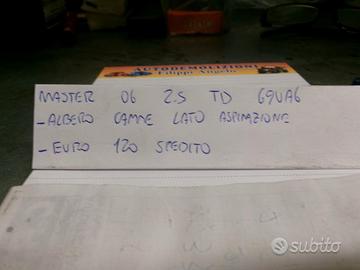 AUTODEMOLIZIONI
Filippi Angelo
MASTER 06 2.5 TD G9UA6
-ALBERO CAMME LATO ASPIRAZIONE
-EURO 120 SPEDITO
subito